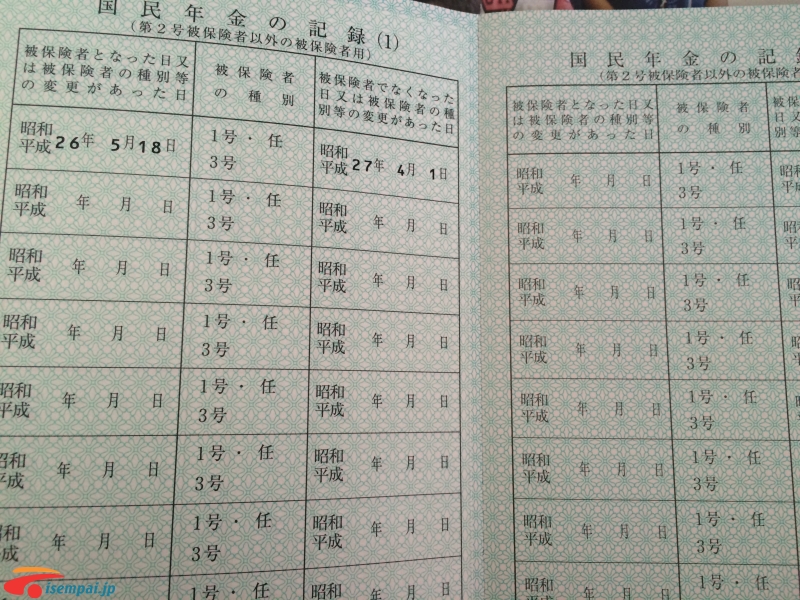 国民年金の記録(1)
(第2号被保険者以外の被保険者用)
被保険者となった日又
は被保険者の種別等
の変更があった日
被保険者
の種別
被保険者でなくなった
日又は被保険者の種
別等の変更があった日
昭和
平成 26年 5月18日
1号・任
3号
昭和
平成 27年 4月 1日
昭和
平成 年 月 日
1号・任
3号
昭和
平成 年 月 日
昭和
平成 年 月 日
1号・任
3号
昭和
平成 年 月 日
昭和
平成 年 月 日
1号・任
3号
昭和
平成 年 月 日
昭和
平成 年 月 日
1号・任
3号
昭和
平成 年 月 日
昭和
平成 年 月 日
1号・任
3号
昭和
平成 年 月 日
昭和
平成 年 月 日
1号・任
3号
昭和
平成 年 月 日
1号・任
昭和
平成 年 月 日
国民年金の記
(第2号被保険者以外の被保険者
被保険者となった日又
は被保険者の種別等
の変更があった日
被保険者
の種別
被保
日又
別等
昭和
平成 年 月 日
1号・任
3号
昭和
平成 年 月 日
1号・任
3号
昭和
平成 年 月 日
1号・任
3号
昭和
平成 年 月 日
1号・任
3号
昭和
平成 年 月 日
1号・任
3号
昭和
平成 年 月 日
1号・任
3号
昭和
平成 年 月 日
1号・任
3号
昭和
平成 年 月 日
1号・任
isempai.jp